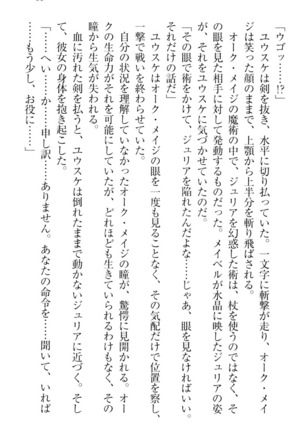 「ウゴッ……!?」
ユウスケは剣を抜き、水平に切り払っていた。一文字に斬撃が走り、オーク・メイ
ジは笑った顔のままで、上顎から上半分を斬り飛ばされる。
オーク・メイジの魔術の中で、ジュリアを幻惑した術は、杖を使うのではなく、そ
の眼を見た相手に対して発動するものだった。メイベルが水晶に映したジュリアの姿
が、それをユウスケに気づかせていたのだ。
「その眼で術をかけて、ジュリアを陥れたんだよな……じゃあ、眼を見なければいい。
それだけの話だ」
ユウスケはオーク・メイジの眼を一度も見ることなく、その気配だけで位置を察し、
一撃で戦いを終わらせていた。
自分の状況を理解していなかったオーク・メイジの瞳が、驚愕に見開かれる。オー
クの生命力がそれを可能にしていたが、どれほども生きていられるわけもなく、その
瞳から生気が失われる。
血に汚れた剣を払うと、ユウスケは倒れたままで動かないジュリアに近づく。そし
て、彼女の身体を抱き起こした。
「……へい……か……申し訳……ありません。あなたの命令を……聞いて、いれば
……もう少し、お役に……」